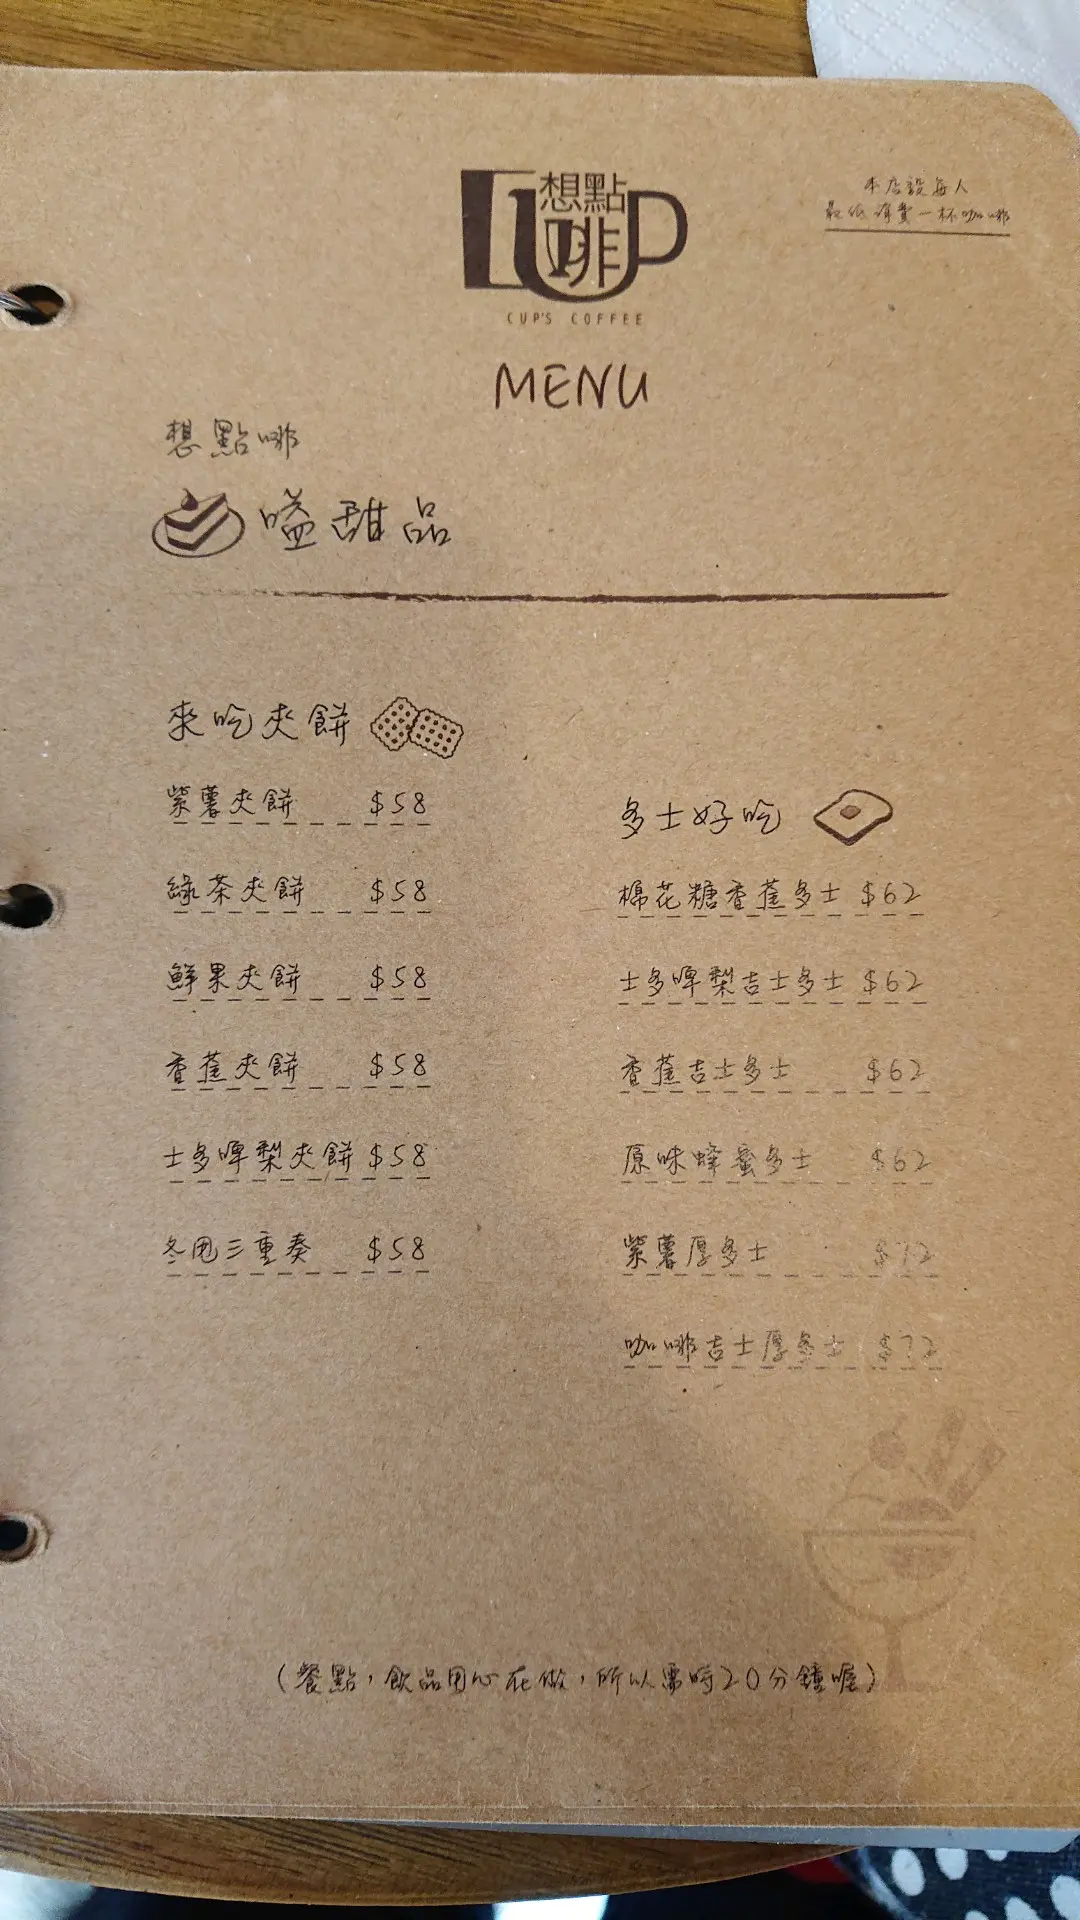 CUP
想點
啡
CUP'S COFFEE
本店設每人
最低消費一杯咖啡
MENU
想點啡
嗌甜品
來吃夾餅
紫薯夾餅 $58
綠茶夾餅 $58
鮮果夾餅 $58
香蕉夾餅 $58
士多啤梨夾餅 $58
冬甩三重奏 $58
多士好吃
棉花糖香蕉多士 $62
士多啤梨吉士多士 $62
香蕉吉士多士 $62
原味蜂蜜多士 $62
紫薯厚多士 $72
咖啡吉士厚多士 $72
(餐點,飲品用心在做,所以需時20分鐘喔)